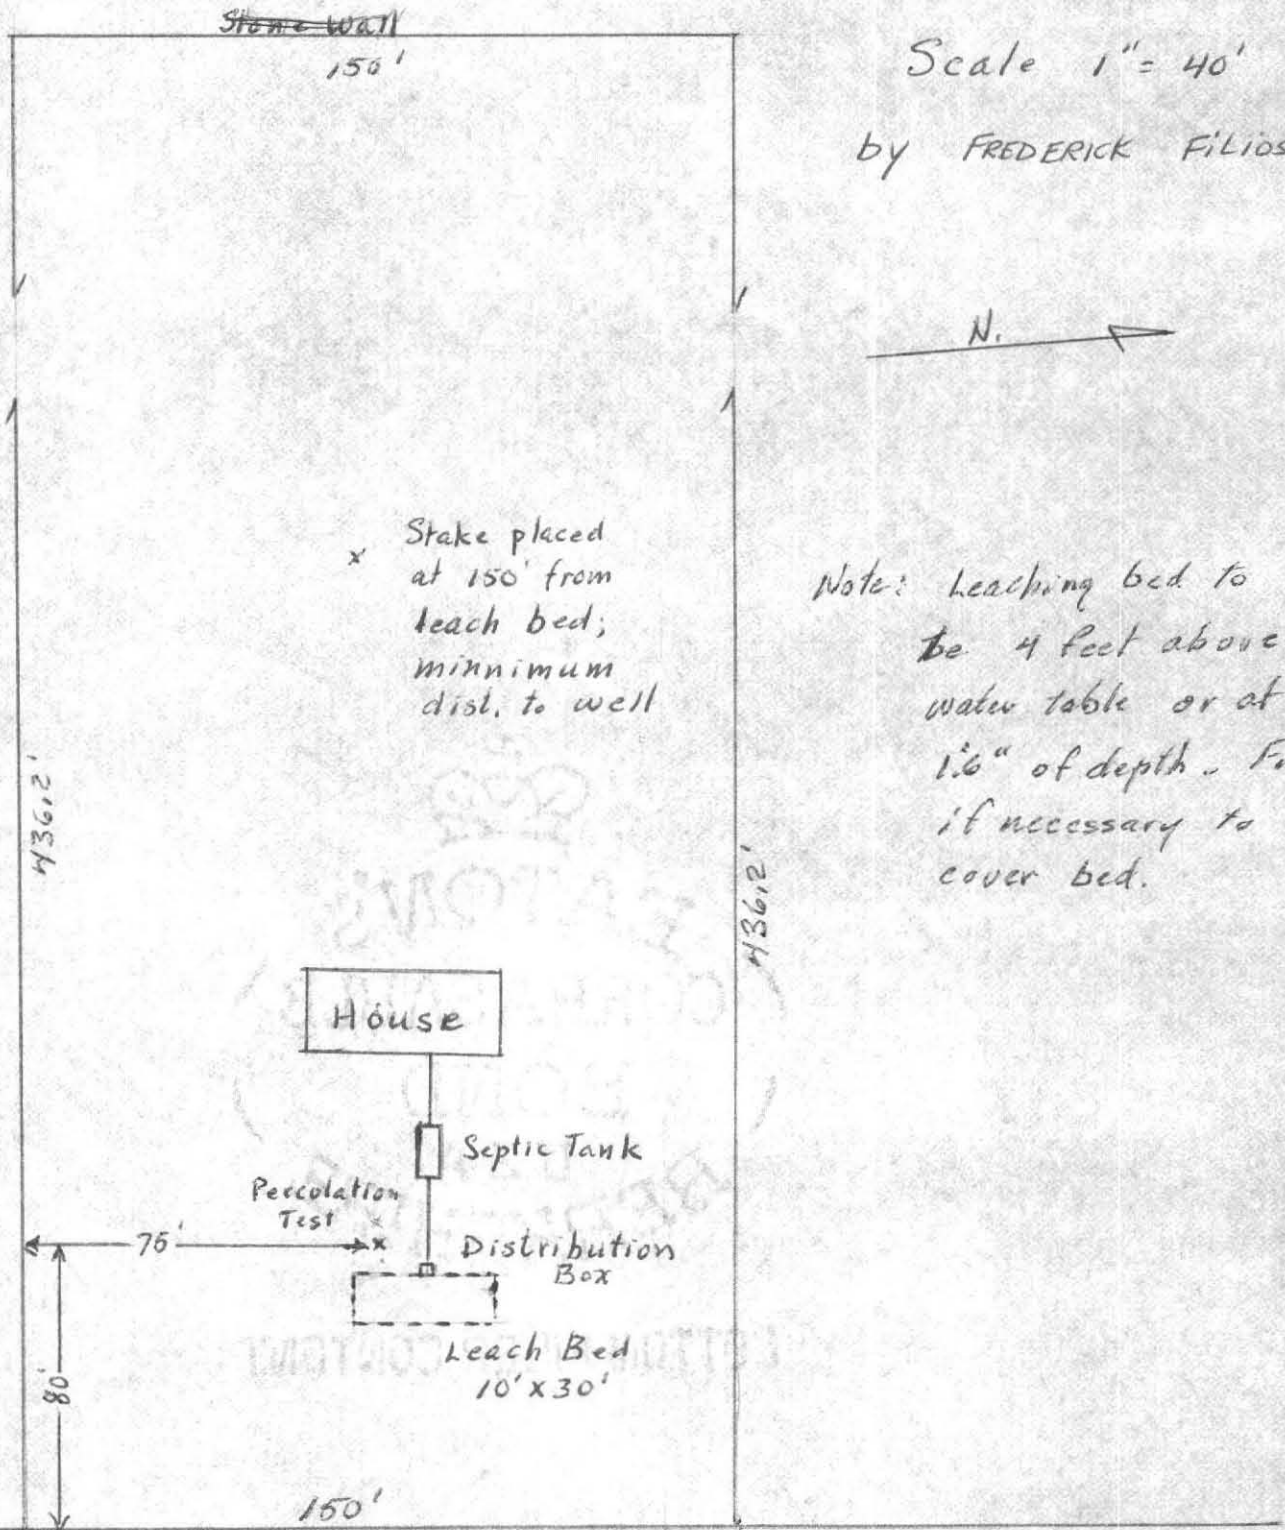 Stone Wall
150'
Scale 1" = 40'
by FREDERICK FiLios
N.
x Stake placed
at 150' from
leach bed;
minnimum
dist. to well
Note: Leaching bed to
be 4 feet above
water table or at
1'6" of depth.
if necessary to
cover bed.
436.2'
436.2'
House
Septic Tank
Percolation
Test
x
75'
Distribution
Box
Leach Bed
10' x 30'
80'
150'